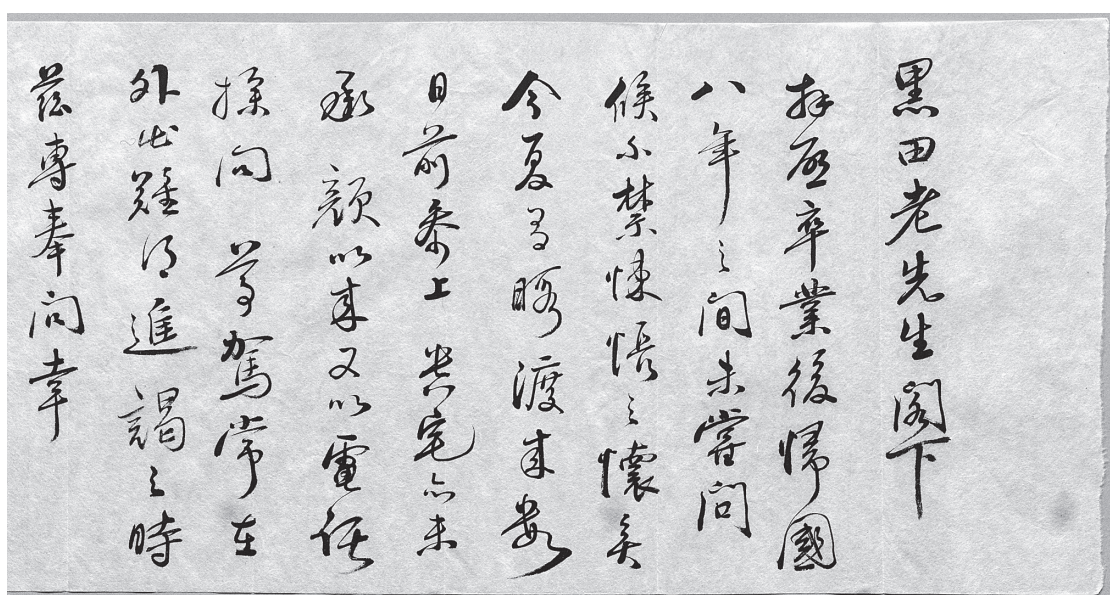 黒田老先生閣下
拝啓卒業後帰國
八年之間未嘗問
候不禁悚之懐矣
今夏得暇渡来数
日前参上 貴宅亦未
承 顔以来又以電話
探問 尊駕常在
外出難得進 謁之時
茲専奉問幸